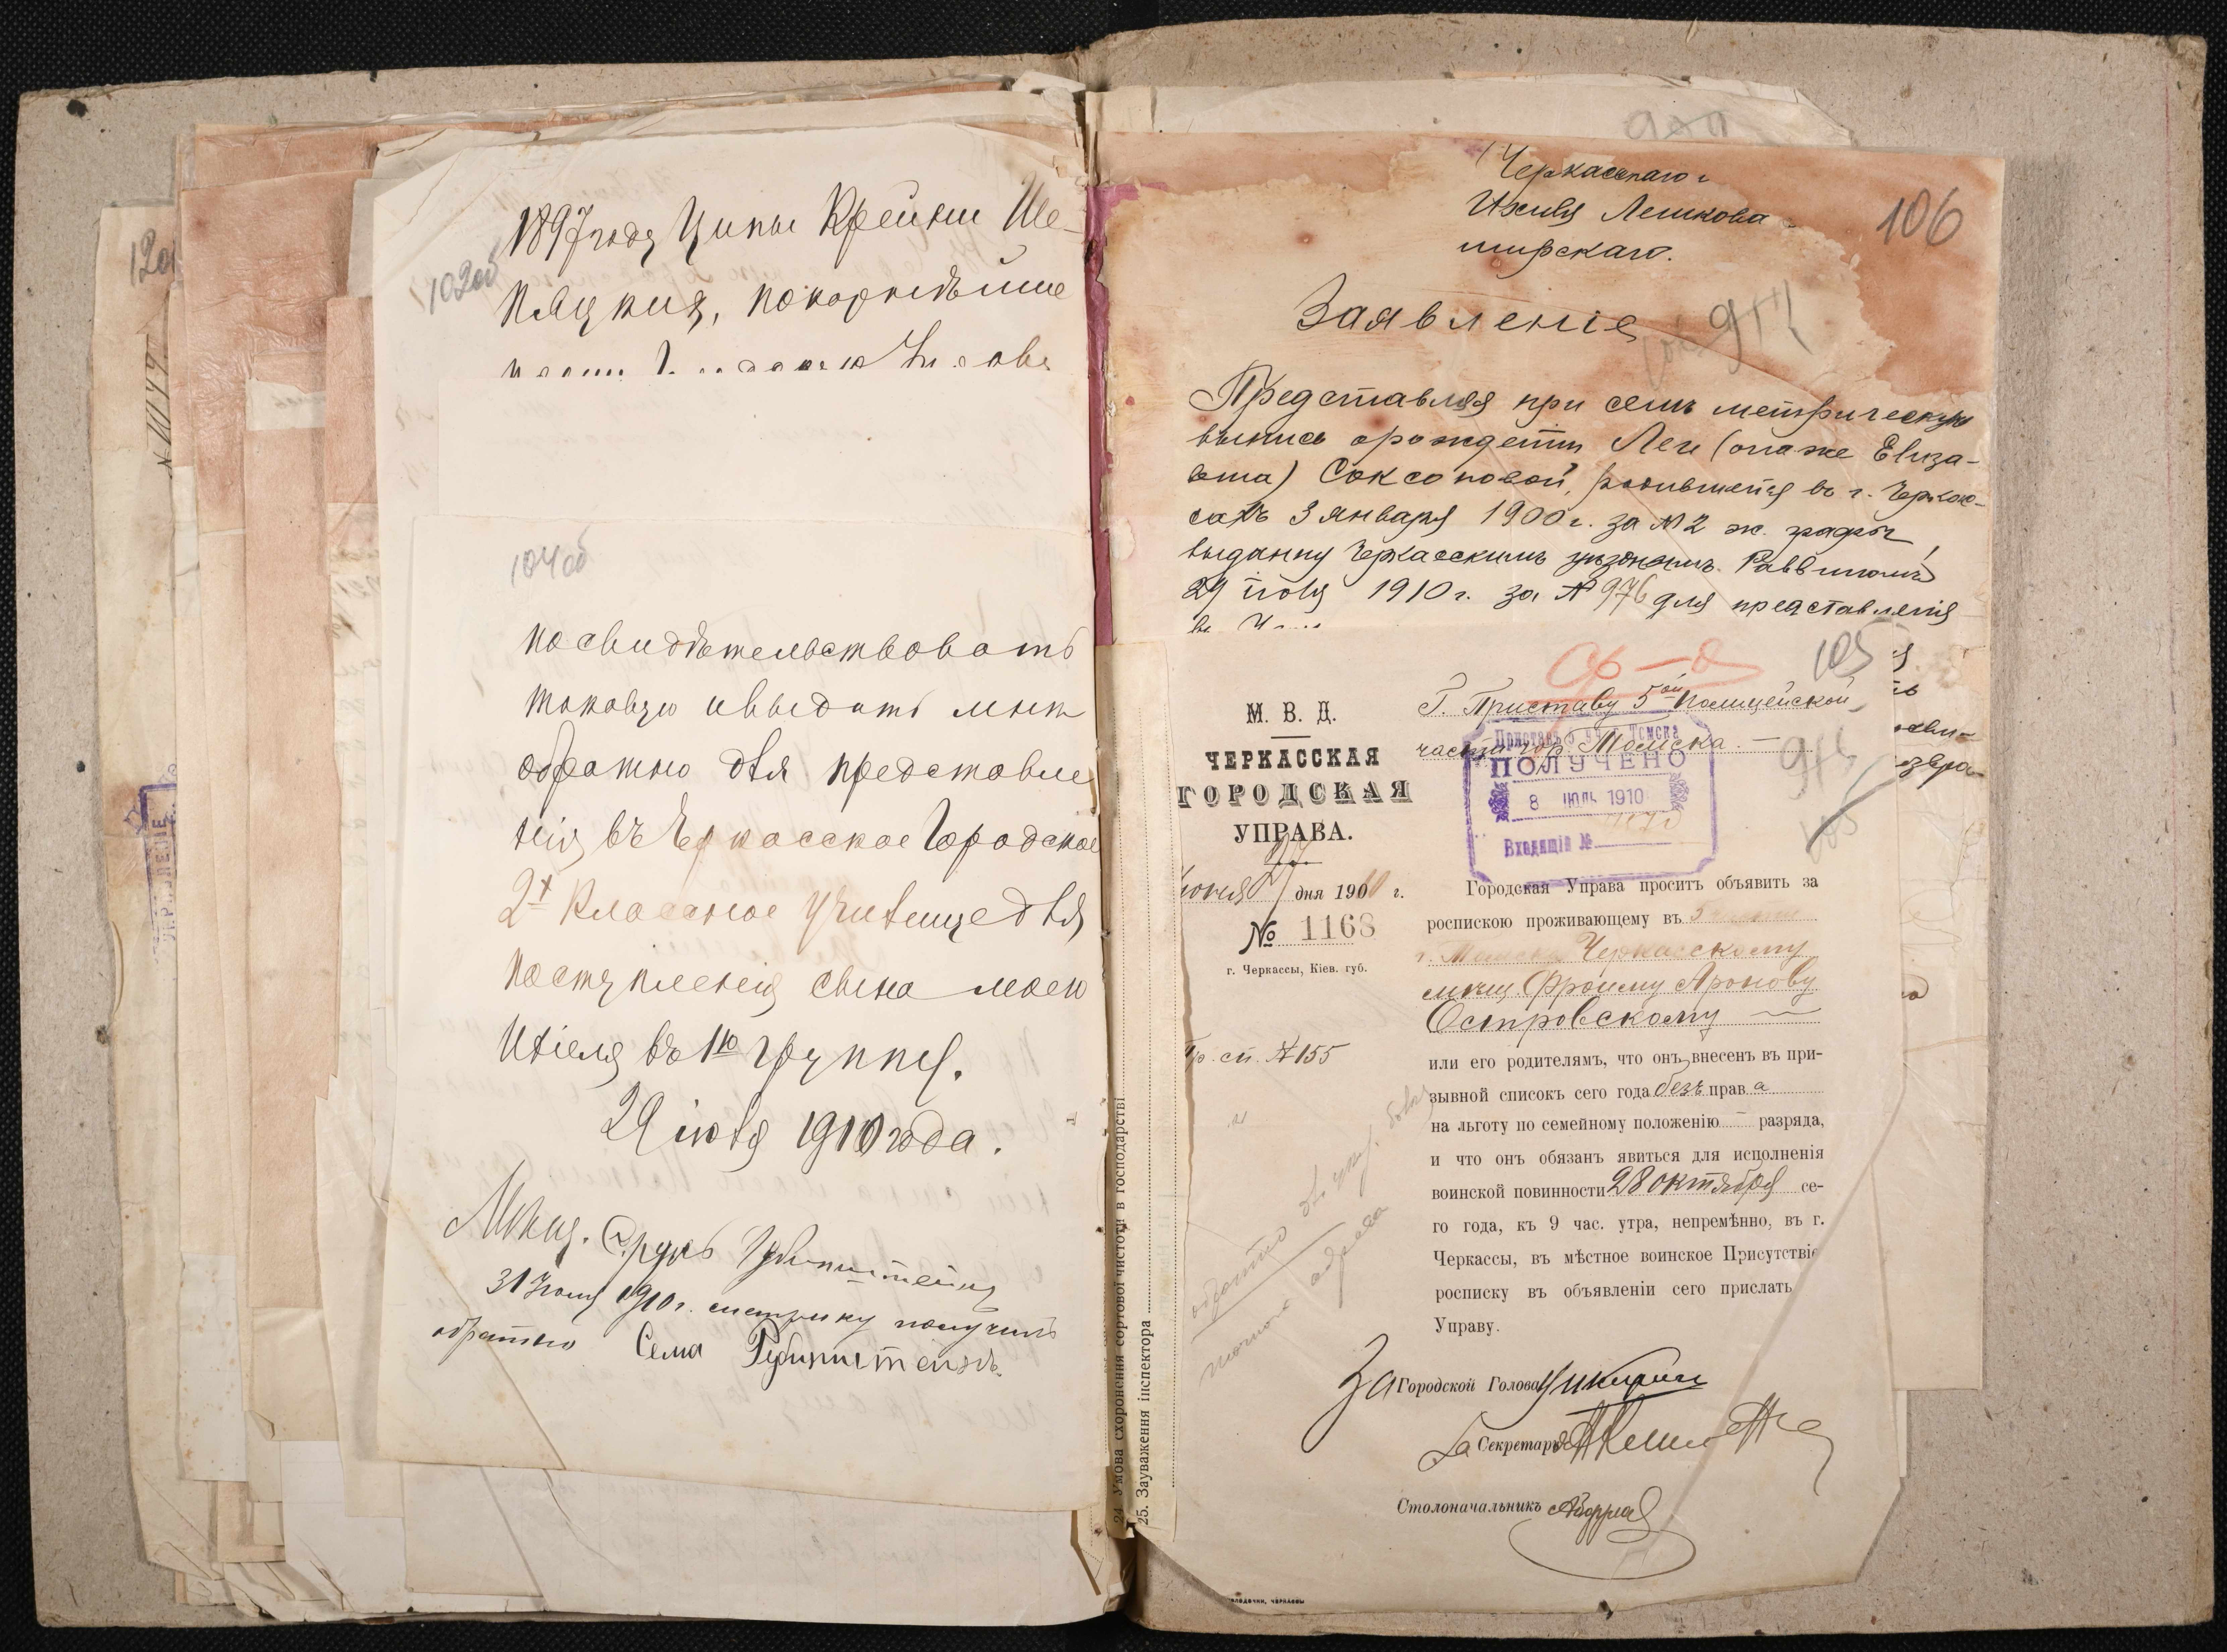 120
102об
1897 году Ципы Крейни Ше-
пляцкия, покорнѣйше
104об
посвидѣтельствовать
таковую и выдать мнѣ
обратно для представле
нія въ Черкасское Городское
2х Классное Училище для
поступленія сына моего
Иліеля въ 1ю группу.
29 іюля 1910 года.
Мѣщ. Сруль Рубинштейнъ
31 Іюля 1910 г. метрику получилъ
обратно Сема Рубинштейнъ.
24 Умова схоронення сортової чистоти в господарстві
25. Зауваження інспектора
Черкасскаго
Лешкова
ширскаго.
106
Заявленіе
Представляя при семъ метрическую
выпись о рожденіи Леи (она же Елиза-
вета) Соксоновой, родившейся въ г. Черкас-
сахъ 3 января 1900 г. за № 2 ж. графы,
выданну Черкасскимъ Раввиномъ
29 іюля 1910 г. за № 976 для представленія
105
М. В. Д.
ЧЕРКАССКАЯ
ГОРОДСКАЯ
УПРАВА.
дня 1910 г.
№ 1168
г. Черкассы, Кіев. губ.
Пр. сп. № 155
Г. Приставу 5ой Полицейской
части гор. Томска. —
Приставъ 5 уч. г. Томска
ПОЛУЧЕНО
8 ІЮЛЬ 1910
Входящій №
Городская Управа проситъ объявить за
роспискою проживающему въ 5
г. Томска Черкасскому
мѣщ. Фроиму Аронову
Островскому —
или его родителямъ, что онъ, внесенъ въ при-
зывной списокъ сего года безъ права
на льготу по семейному положенію — разряда,
и что онъ обязанъ явиться для исполненія
воинской повинности 28 октября се-
го года, къ 9 час. утра, непремѣнно, въ г.
Черкассы, въ мѣстное воинское Присутствіе
росписку въ объявленіи сего прислать
Управу.
За Городской Голова
За Секретарь
Столоначальникъ